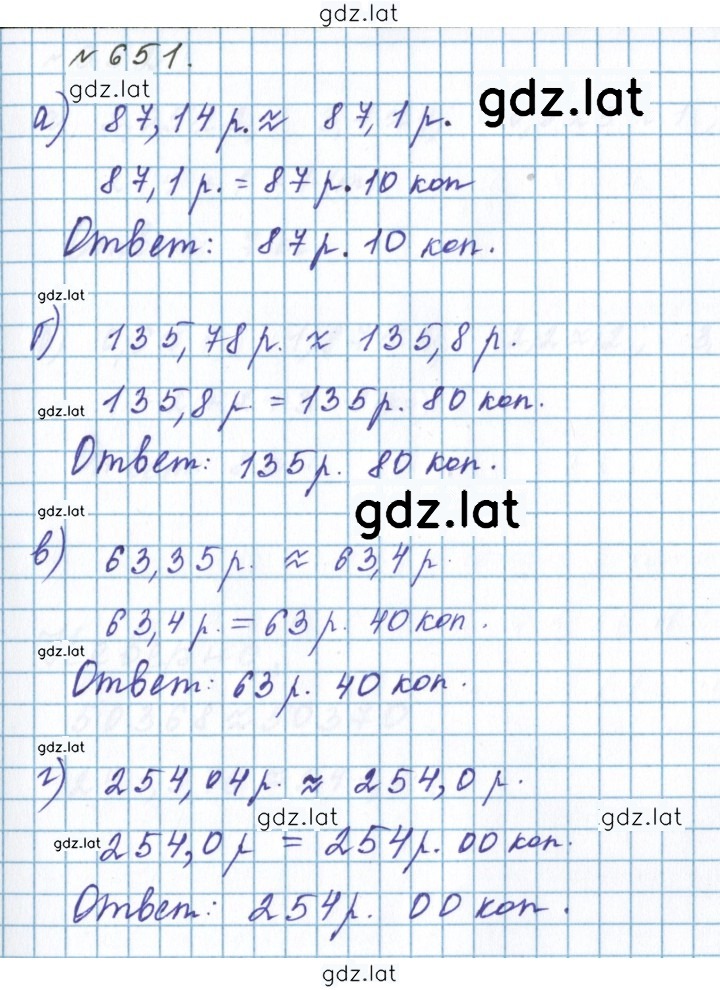 gdz.lat
№ 651.
gdz.lat
gdz.lat
а) 87,14 р. ≈ 87,1 р.
87,1 р. = 87 р. 10 коп
Ответ: 87 р. 10 коп.
gdz.lat
б) 135,78 р. ≈ 135,8 р.
gdz.lat
135,8 р = 135 р. 80 коп.
Ответ: 135 р. 80 коп.
gdz.lat
gdz.lat
в) 63,35 р. ≈ 63,4 р.
63,4 р. = 63 р. 40 коп.
gdz.lat
Ответ: 63 р. 40 коп.
gdz.lat
г) 254,04 р. ≈ 254,0 р.
gdz.lat
gdz.lat
gdz.lat
254,0 р = 254 р. 00 коп.
Ответ: 254 р. 00 коп.
gdz.lat